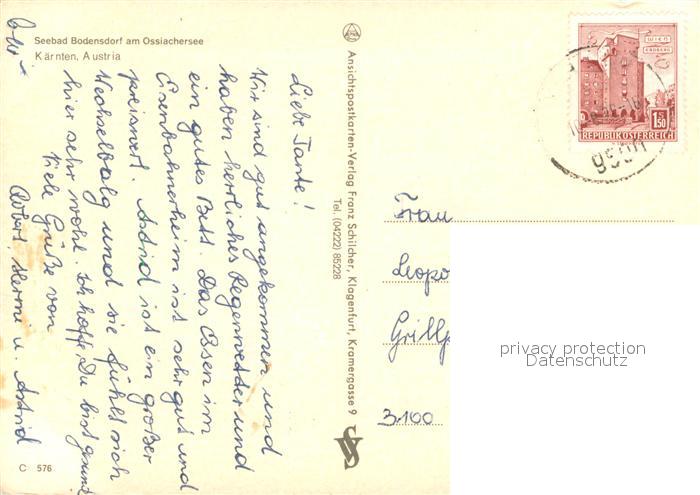 Seebad Bodensdorf am Ossiachersee
Kärnten, Austria
Liebe Tante!
Wir sind gut angekommen und
haben herrliches Regenwetter und
ein gutes Bett. Das Essen im
Eisenbahnerheim ist sehr gut und
preiswert. Astrid ist ein großer
Wechselbalg und sie fühlt sich
hier sehr wohl. Ich hoffe Du bist gesund
Viele Grüße von
Robert Hermi u. Astrid
C 576
Ansichtspostkarten-Verlag Franz Schilcher, Klagenfurt, Kramergasse 9
Tel. (04222) 85228
WIEN
ERDBERG
S
1.50
REPUBLIK ÖSTERREICH
Frau
Leopo
Grillp
3100
privacy protection
Datenschutz